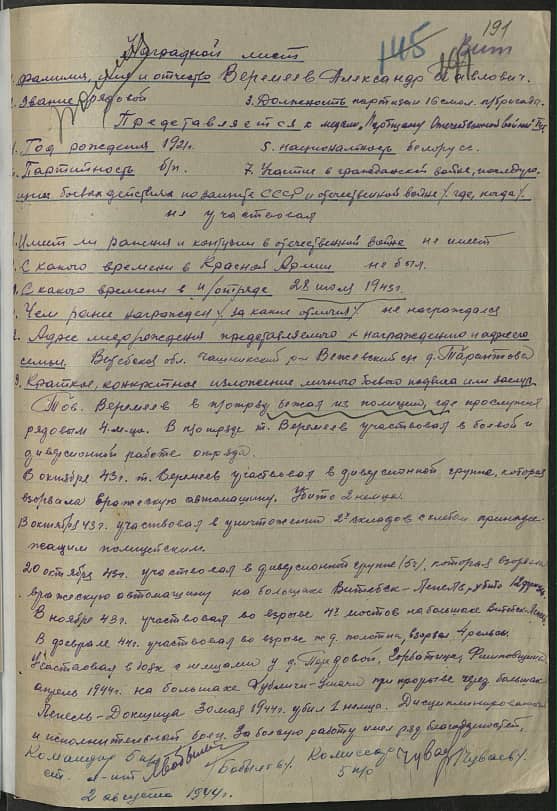 191
145
Наградной лист
Фамилия, имя и отчество Веремеев Александр Павлович.
2. Звание рядовой 3. Должность партизан 16 смол. п/бригады
Представляется к медали „Партизану Отечественной войны"
4. Год рождения 1921г. 5. национальность белорусс.
Партийность б/п. 7. Участие в гражданской войне, последую-
щих боевых действиях по защите СССР и отечественной войне /где, когда/
не участвовал
Имеет ли ранения и контузии в отечественной войне не имеет
С какого времени в Красной Армии не был.
С какого времени в п/отряде 28 июля 1943г.
Чем ранее награжден /за какие отличия/ не награждался
2. Адрес места рождения представляемого к награждению и адрес его
семьи. Витебская обл. Чашникский р-н с/с д.
3. Краткое, конкретное изложение личного боевого подвига или заслуг
Тов. Веремеев в п/отряд бежал из полиции, где прослужил
рядовым 4 м-ца. В п/отряде т. Веремеев участвовал в боевой и
диверсионной работе отряда.
В октябре 43г. т. Веремеев участвовал в диверсионной группе, которая
взорвала вражескую автомашину. Убито 2 немца.
В октябре 43г. участвовал в уничтожении 2х складов с хлебом принадле-
жащим полицейским.
20 октября 43г. участвовал в диверсионной группе (5ч), которая взорвала
вражескую автомашину на большаке Витебск-Лепель, убито
В ноябре 43г. участвовал во взрыве 4х мостов на большаке Витебск-Лепель
В феврале 44г. участвовал во взрыве ж.д. полотна, взорвал 4 рельсы.
Участвовал в боях с немцами у д.
апрель 1944г. на большаке при прорыве через большак
Лепель-Докшица 30 мая 1944г. убил 1 немца. Дисциплинированный
и исполнительный боец. За боевую работу имел ряд благодарностей.
Командир 5 п/о /Бобылев/ Комиссар /Чуваев/
ст. л-нт 5 п/о
2 августа 1944г.